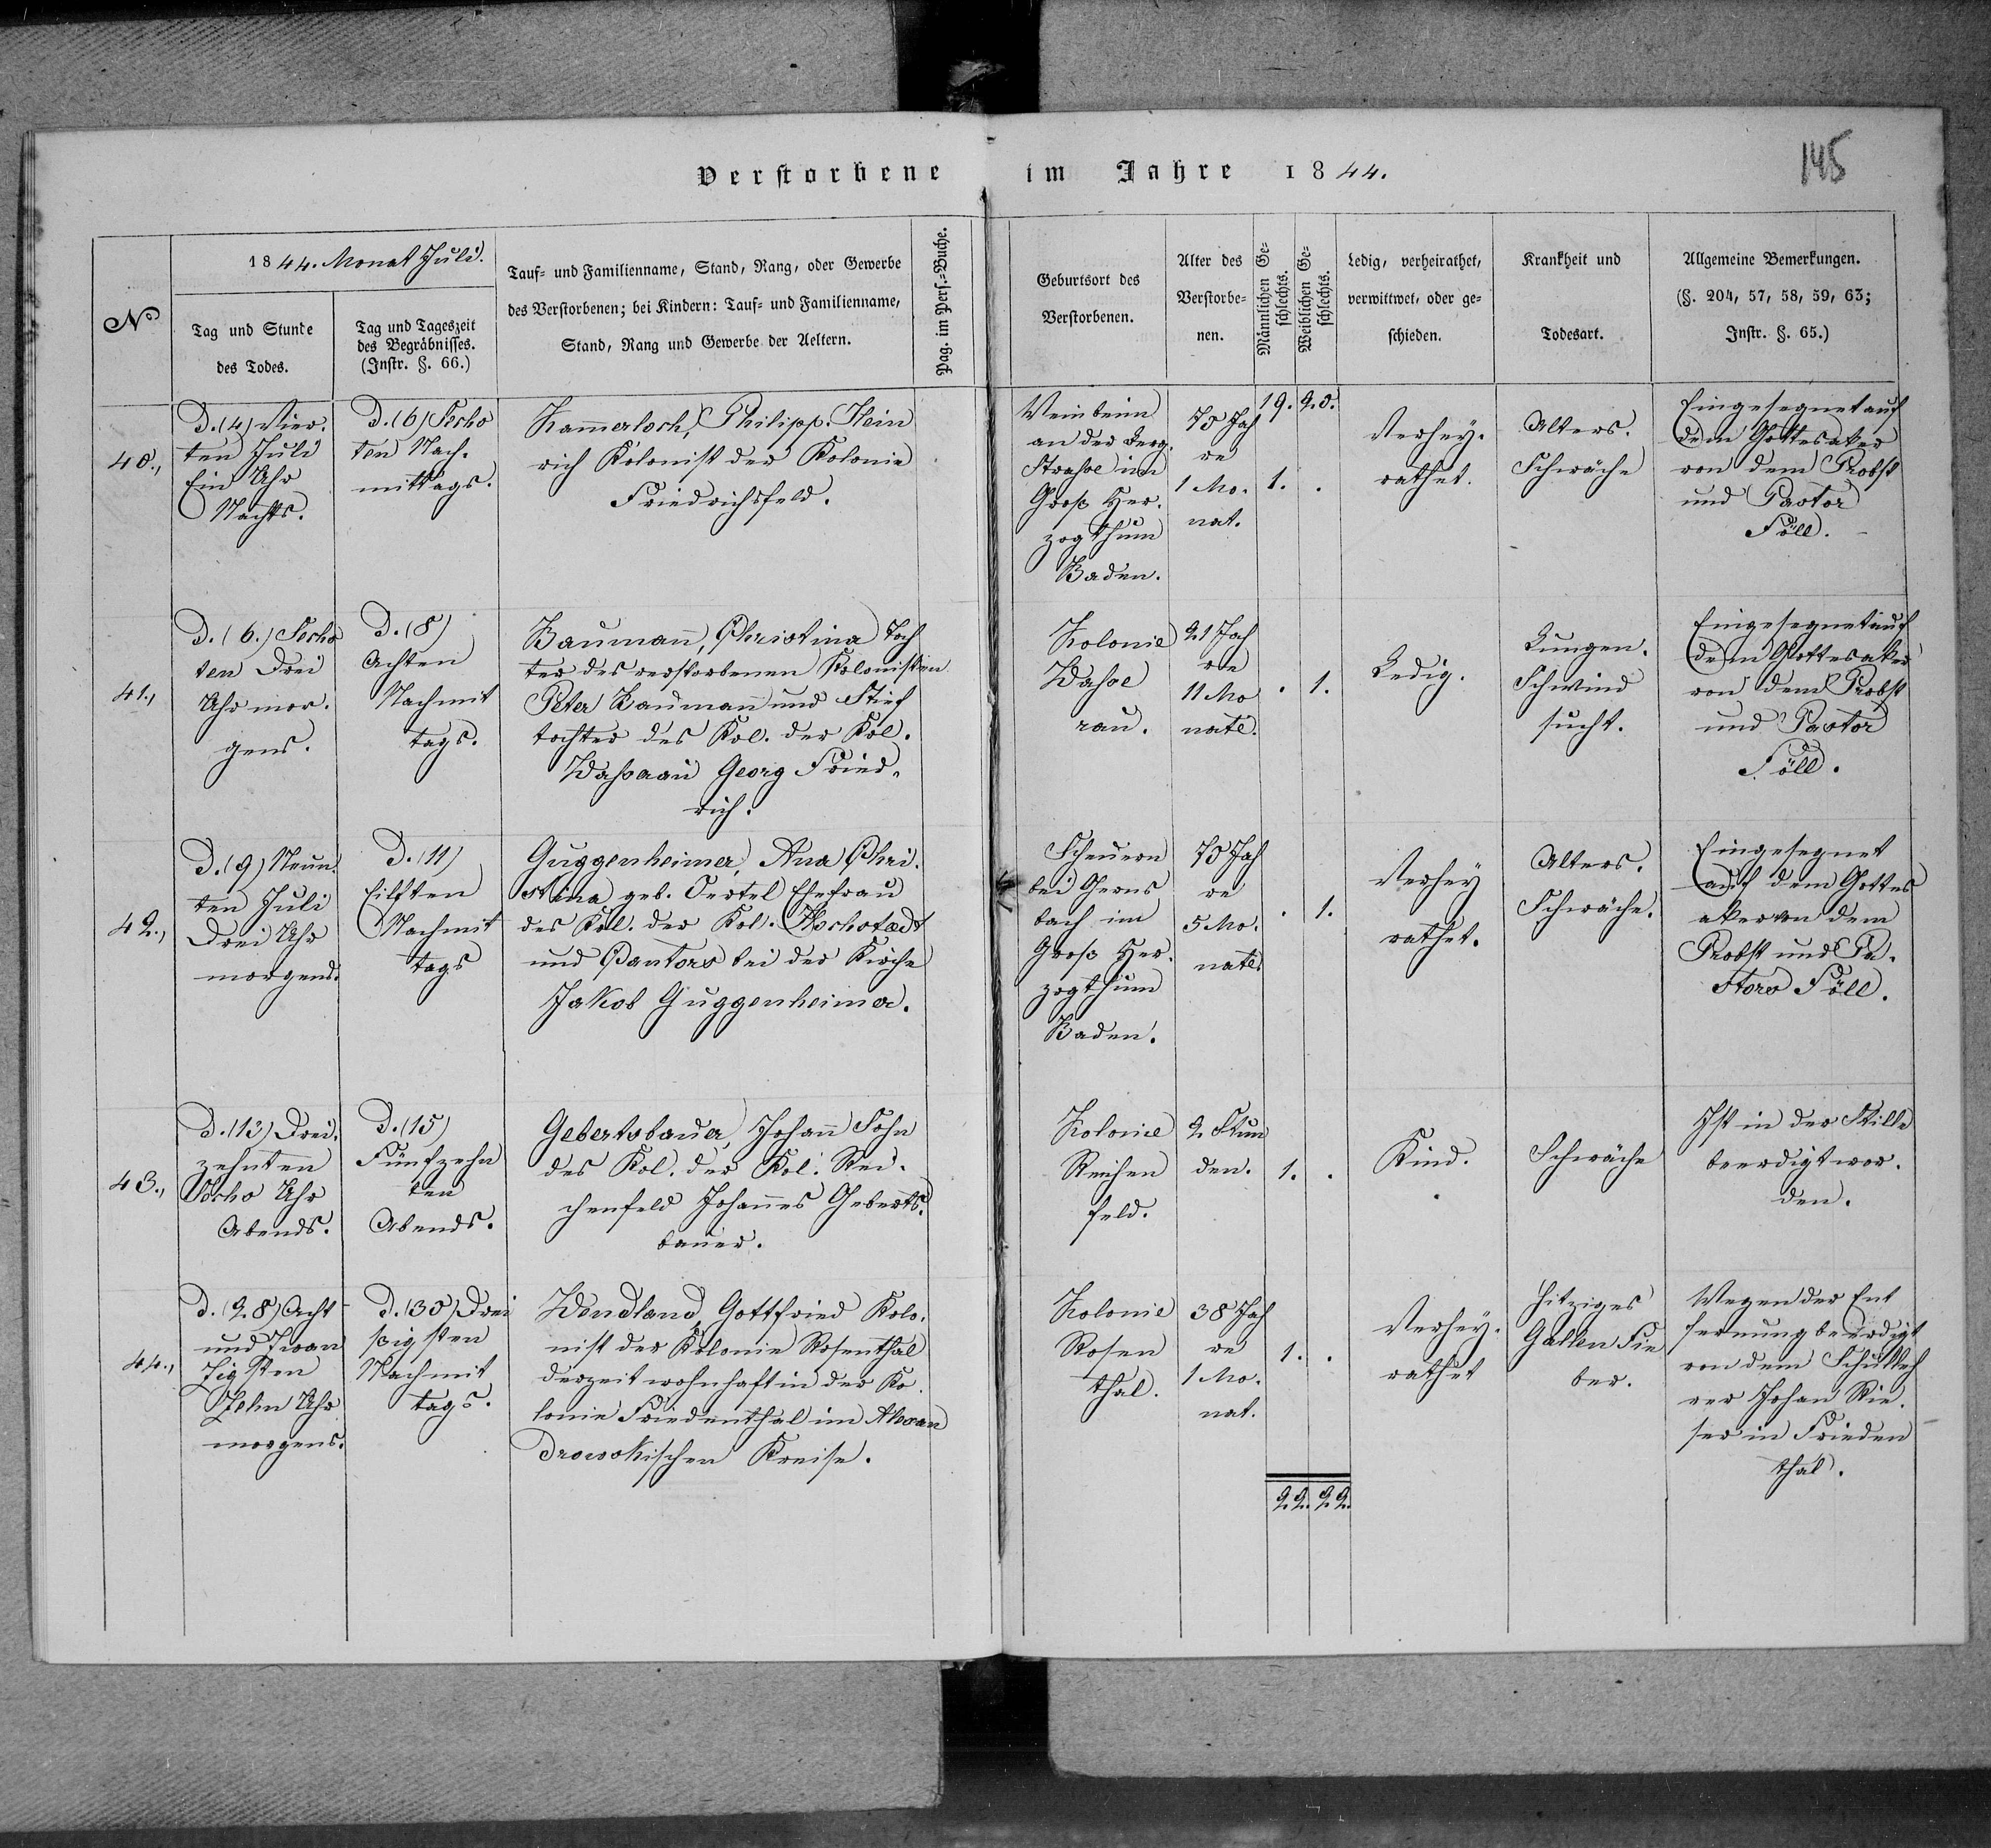 Verstorbene im Jahre 1844.
145
No
1844. Monat Juli.
Tag und Stunde
des Todes.
Tag und Tageszeit
des Begräbnisses.
(Instr. §. 66.)
Tauf- und Familienname, Stand, Rang, oder Gewerbe
des Verstorbenen; bei Kindern: Tauf- und Familienname,
Stand, Rang und Gewerbe der Aeltern.
Pag. im Pers.-Buche.
Geburtsort des
Verstorbenen.
Alter des
Verstorbe-
nen.
Männlichen Ge-
schlechts.
Weiblichen Ge-
schlechts.
Ledig, verheirathet,
verwittwet, oder ge-
schieden.
Krankheit und
Todesart.
Allgemeine Bemerkungen.
(§. 204, 57, 58, 59, 63;
Instr. §. 65.)
19. 20.
40.,
D. (4) Vier-
ten Juli
Ein Uhr
Nachts.
D. (6) Sechs
ten Nach-
mittags.
Kammerloch, Philipp. Hein
rich Kolonist der Kolonie
Friedrichsfeld.
Weinheim
an der Berg-
Strasse im
Groß Her-
zogthum
Baden.
70 Jah
re
1 Mo-
nat.
1. .
Verhey-
rathet.
Alters-
Schwäche
Eingesegnet auf
dem Gottesaker
von dem Probst
und Pastor
Föll.
41.,
D. (6.) Sechs
ten Drei
Uhr mor-
gens.
D. (8)
Achten
Nachmit
tags.
Baumann, Christina Toch
ter des verstorbenen Kolonisten
Peter Baumann und Stief
tochter des Kol. der Kol.
Wasserau Georg Fried-
rich.
Kolonie
Wasse
rau.
21 Jah
re
11 Mo
nate.
. 1.
Ledig.
Lungen-
Schwind
sucht.
Eingesegnet auf
dem Gottesaker
von dem Probst
und Pastor
Föll.
42.,
D. (9) Neun-
ten Juli
Drei Uhr
morgends.
D. (11)
Eilften
Nachmit
tags
Guggenheimer, Anna Chri-
stina geb. Oertel Ehefrau
des Kol. der Kol. Hochstædt
und Cantors bei der Kirche
Jakob Guggenheimer.
Scheuern
bei Gerns
bach im
Groß Her-
zogthum
Baden.
70 Jah
re
5 Mo-
nate.
. 1.
Verhey
rathet.
Alters-
Schwäche.
Eingesegnet
auf dem Gottes
aker von dem
Probst und Pa-
stors Föll.
43.,
D. (13) Drei-
zehnten
Sechs Uhr
Abends.
D. (15)
Fünfzehn
ten
Abends.
Gebertsbauer, Johann Sohn
des Kol. der Kol. Rei-
chenfeld Johannes Geberts-
bauer.
Kolonie
Reichen
feld.
2 Stun
den.
1. .
Kind.
Schwäche
Ist in der Stille
beerdigt wor-
den.
44.,
D. (28) Acht
und Zwan
zigsten
Zehn Uhr
morgens.
D. (30) Drei
ssigsten
Nachmit
tags.
Wendland, Gottfried Kolo-
nist der Kolonie Rosenthal
derzeit wohnhaft in der Ko-
lonie Friedenthal im Alexan
drowskischen Kreise.
Kolonie
Rosen
thal.
38 Jah
re
1 Mo-
nat.
1. .
Verhey-
rathet
Hitziges
Gallen Fie
ber.
Wegen der Ent
fernung beerdigt
von dem Schulleh
rer Johan Rie-
ser in Frieden
thal.
22. 22.